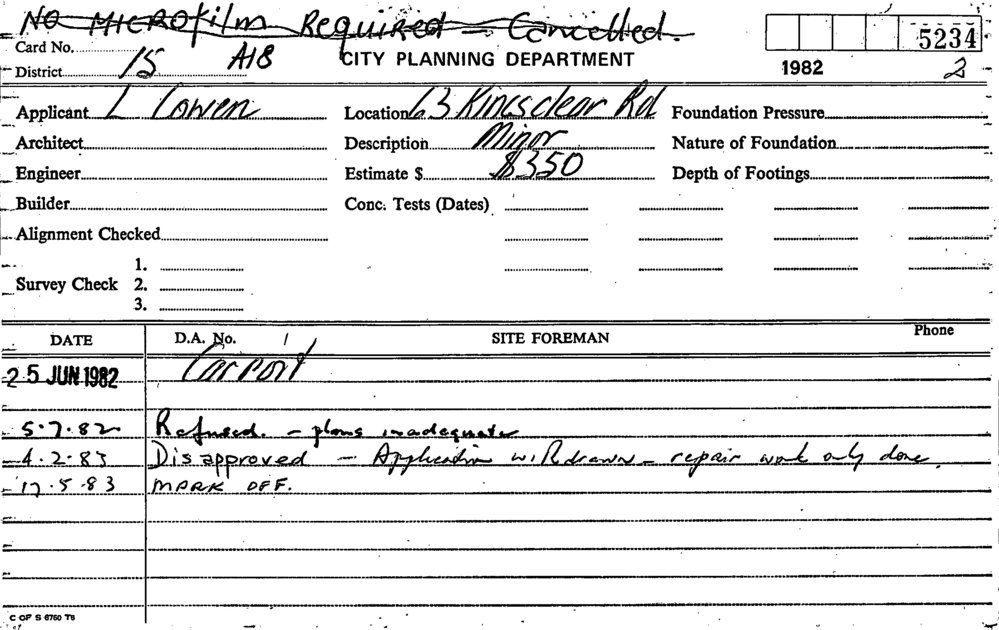 No MICROfilm Required - Cancelled.
Card No.
5234
District 15 A18
CITY PLANNING DEPARTMENT
1982
2
Applicant L Cowen
Location 63 Kingsclear Rd
Foundation Pressure
Architect
Description Minor
Nature of Foundation
Engineer
Estimate $ $350
Depth of Footings
Builder
Conc. Tests (Dates)
Alignment Checked
Survey Check 1.
2.
3.
DATE
D.A. No. /
SITE FOREMAN
Phone
25 JUN 1982 Carport
5.7.82 Refused. - plans inadequate
4.2.83 Disapproved - Application withdrawn - repair work only done.
17.5.83 MARK OFF.
C OF S 6760 T6